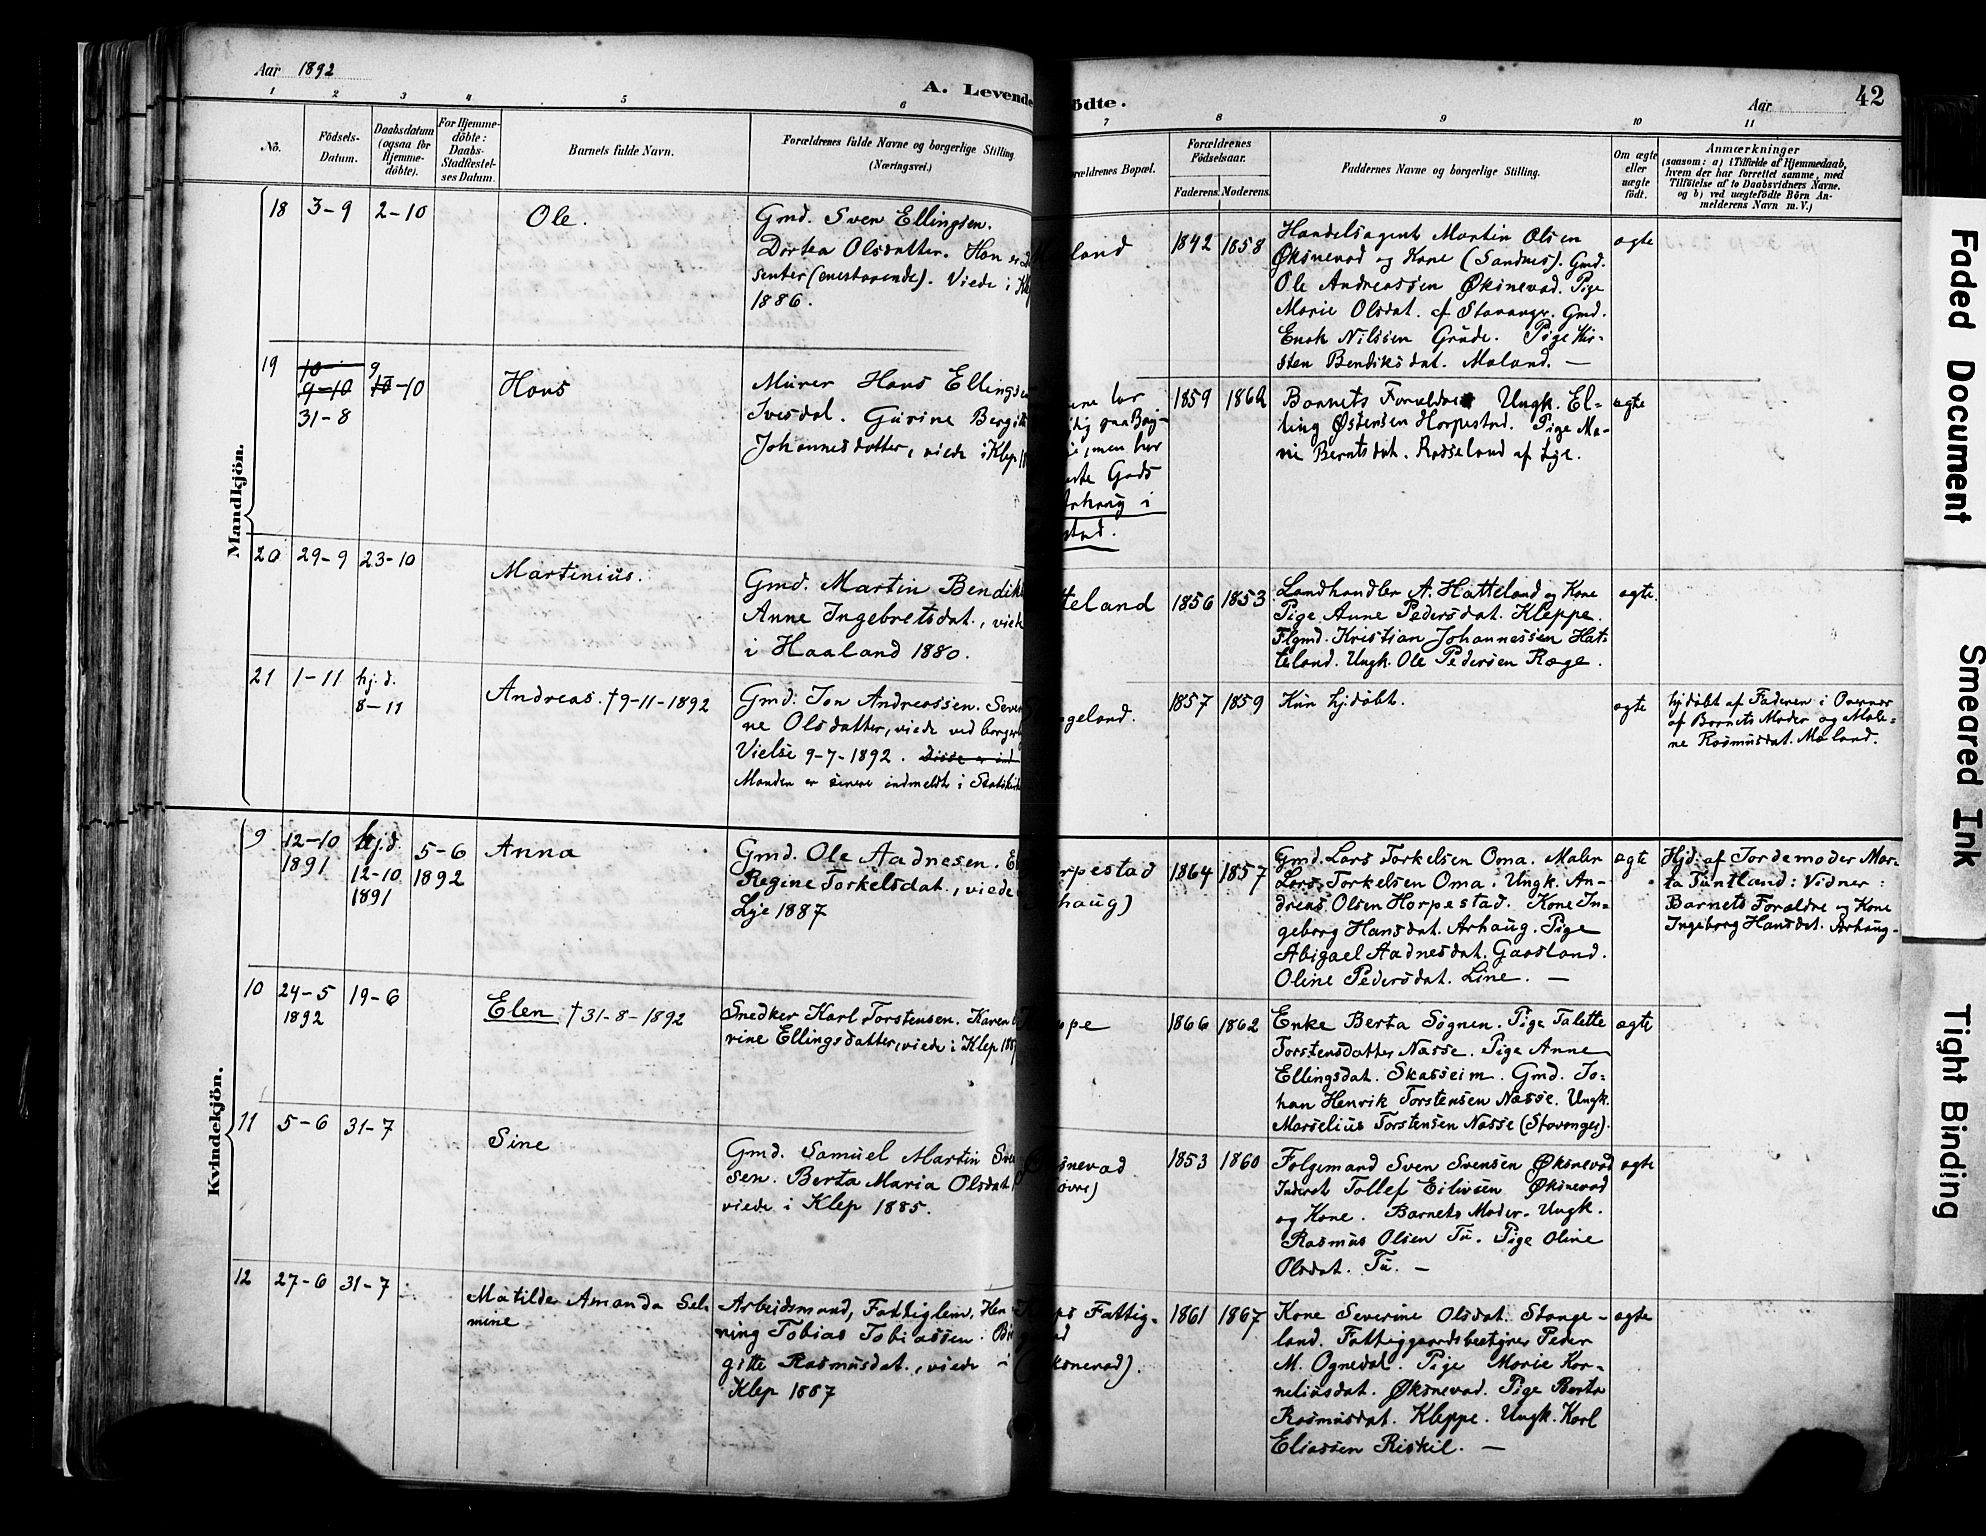 Aar 1892
A. Levende
ödte.
Aar
42
1 2 3 4 5 6 7 8 9 10 11
No.
Födsels-
Datum.
Daabsdatum
(ogsaa for
Hjemme-
döbte).
For Hjemme-
döbte:
Daabs-
Stadfæstel-
ses Datum.
Barnets fulde Navn.
Forældrenes fulde Navne og borgerlige Stilling
(Næringsvei.)
rældrenes Bopæl.
Forældrenes
Födselsaar.
Faderens. Moderens.
Faddernes Navne og borgerlige Stilling.
Om ægte
eller
uægte
födt.
Anmærkninger
(saasom: a) i Tilfælde af Hjemmedaab,
hvem der har forrettet samme, med
Tilföielse af to Daabsvidners Navne.
og b) ved uægtefödte Börn An-
melderens Navn m. V.)
Mandkjön.
18 3-9 2-10
Ole.
Gmd. Sven Ellingsen.
Dortea Olsdatter. Han er
senter (enestaaende). Viede i Kl
1886.
land
1842 1858
Handelsagent Martin Olsen
Øksnevad og Kone (Sandnes). Gmd.
Ole Andreassen Øksnevad. Pige
Marie Olsdat. af Stavanger. Gmd.
Enok Nilssen Grude. Pige Kir-
sten Bendiksdat. Maland. —
ægte
19
10
9-10
31-8
9
10-10
Hans
Murer Hans Ellings
Ivesdal. Gurine Bergit
Johannesdatter, viede i Klep
men har
Gods
i
stad.
1859 1862
Barnets Forældre Ungk. El-
ling Østensen Horpestad. Pige Ma-
rie Berntsdat. Rosseland af Lye.
ægte
20 29-9 23-10
Martinius.
Gmd. Martin Bendik
Anne Ingebretsdat., vie
i Haaland 1880.
tteland
1856 1853
Landhandler A. Hatteland og Kone
Pige Anne Pedersdat. Kleppe.
Flgmd. Kristian Johannessen Hat-
teland. Ungk. Ole Pedersen Ræge.
ægte.
21 1-11
hj. d.
8-11
Andreas. † 9-11-1892
Gmd. Jon Andreassen. Seve
ne Olsdatter, viede ved borger
Vielse 9-7-1892. Disse er ind
Manden er senere indmeldt i Statskirk
ngeland.
1857 1859
Kun hjdøbt.
ægte
hjdøbt af Faderen i Overvær
af Barnets Moder og Male-
ne Rasmusdat. Maland.
Kvindekjön.
9
12-10
1891
hj.d.
12-10
1891
5-6
1892
Anna
Gmd. Ole Aadnesen. E
Regine Torkelsdat., viede
Lye 1887
rpestad
haug)
1864 1857
Gmd. Lars Torkelsen Oma. Maler
Lars Torkelsen Oma. Ungk. An-
dreas Olsen Horpestad. Kone In-
geborg Hansdat. Arhaug. Pige
Abigael Aadnesdat. Gaasland.
Oline Pedersdat. Line. —
ægte
Hjd. af Jordemoder Mar-
ta Tuntland: Vidner:
Barnets Forældre og Kone
Ingeborg Hansdat. Arhaug-
10
24-5
1892
19-6
Elen. † 31-8-1892
Snedker Karl Torstensen. Karen
rine Ellingsdatter, viede i Klep
ppe
1866 1862
Enke Berta Søgnen. Pige Talette
Torstensdatter Næsse. Pige Anne
Ellingsdat. Skasseim. Gmd. Jo-
han Henrik Torstensen Næsse. Ungk.
Marselius Torstensen Næsse (Stavanger).
ægte
11 5-6 31-7
Sine
Gmd. Samuel Martin Sve
sen. Berta Maria Olsdat
viede i Klep 1885.
snevad
øvre)
1853 1860
Følgemand Sven Svensen Øksnevad
Inderst Tollef Eilivsen Øksnevad
og Kone. Barnets Moder. Ungk.
Rasmus Olsen Tu. Pige Oline
Olsdat. Tu. —
ægte
12 27-6 31-7
Matilde Amanda Sel-
mine
Arbeidsmand, Fattiglem, Hen
ning Tobias Tobiassen. Bir
gitte Rasmusdat., viede i
Klep 1887
ps Fattig-
(Øksnevad).
1861 1867
Kone Severine Olsdat. Stange-
land. Fattiggaardsbestyrer Peder
M. Ognedal. Pige Marie Kor-
neliusdat. Øksnevad. Pige Berta
Rasmusdat. Kleppe. Ungk. Karl
Eliassen Riskil. —
ægte
Faded Document
Smeared Ink
Tight Binding